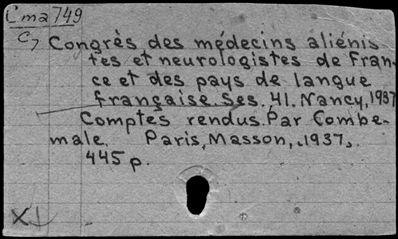 Cma749
C7
Congrès des médecins aliénis
tes et neurologistes de Fran-
ce et des pays de langue
française. Ses. 41. Nancy, 1937
Comptes rendus. Par Combe-
male. Paris, Masson, 1937.
445 p.